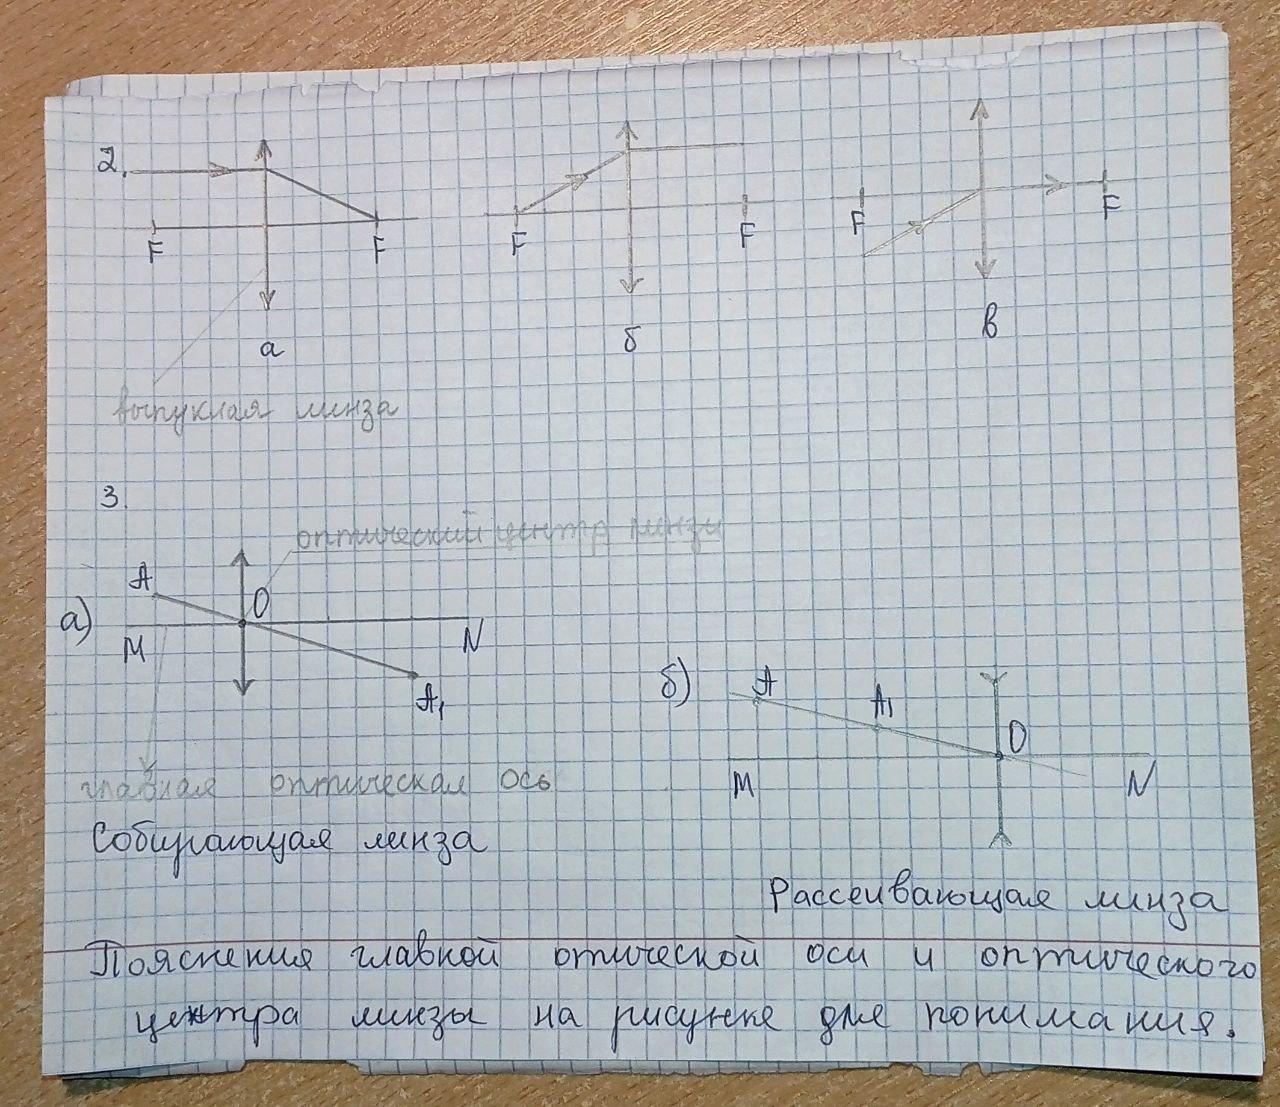 2.
F F
F F
F F
а б в
выпуклая линза
3.
оптический центр линзы
а) A O
M N
A₁
б) A A₁ O
M N
главная оптическая ось
Собирающая линза
Рассеивающая линза
Пояснения главной отической оси и оптического
центра линзы на рисунке для понимания.